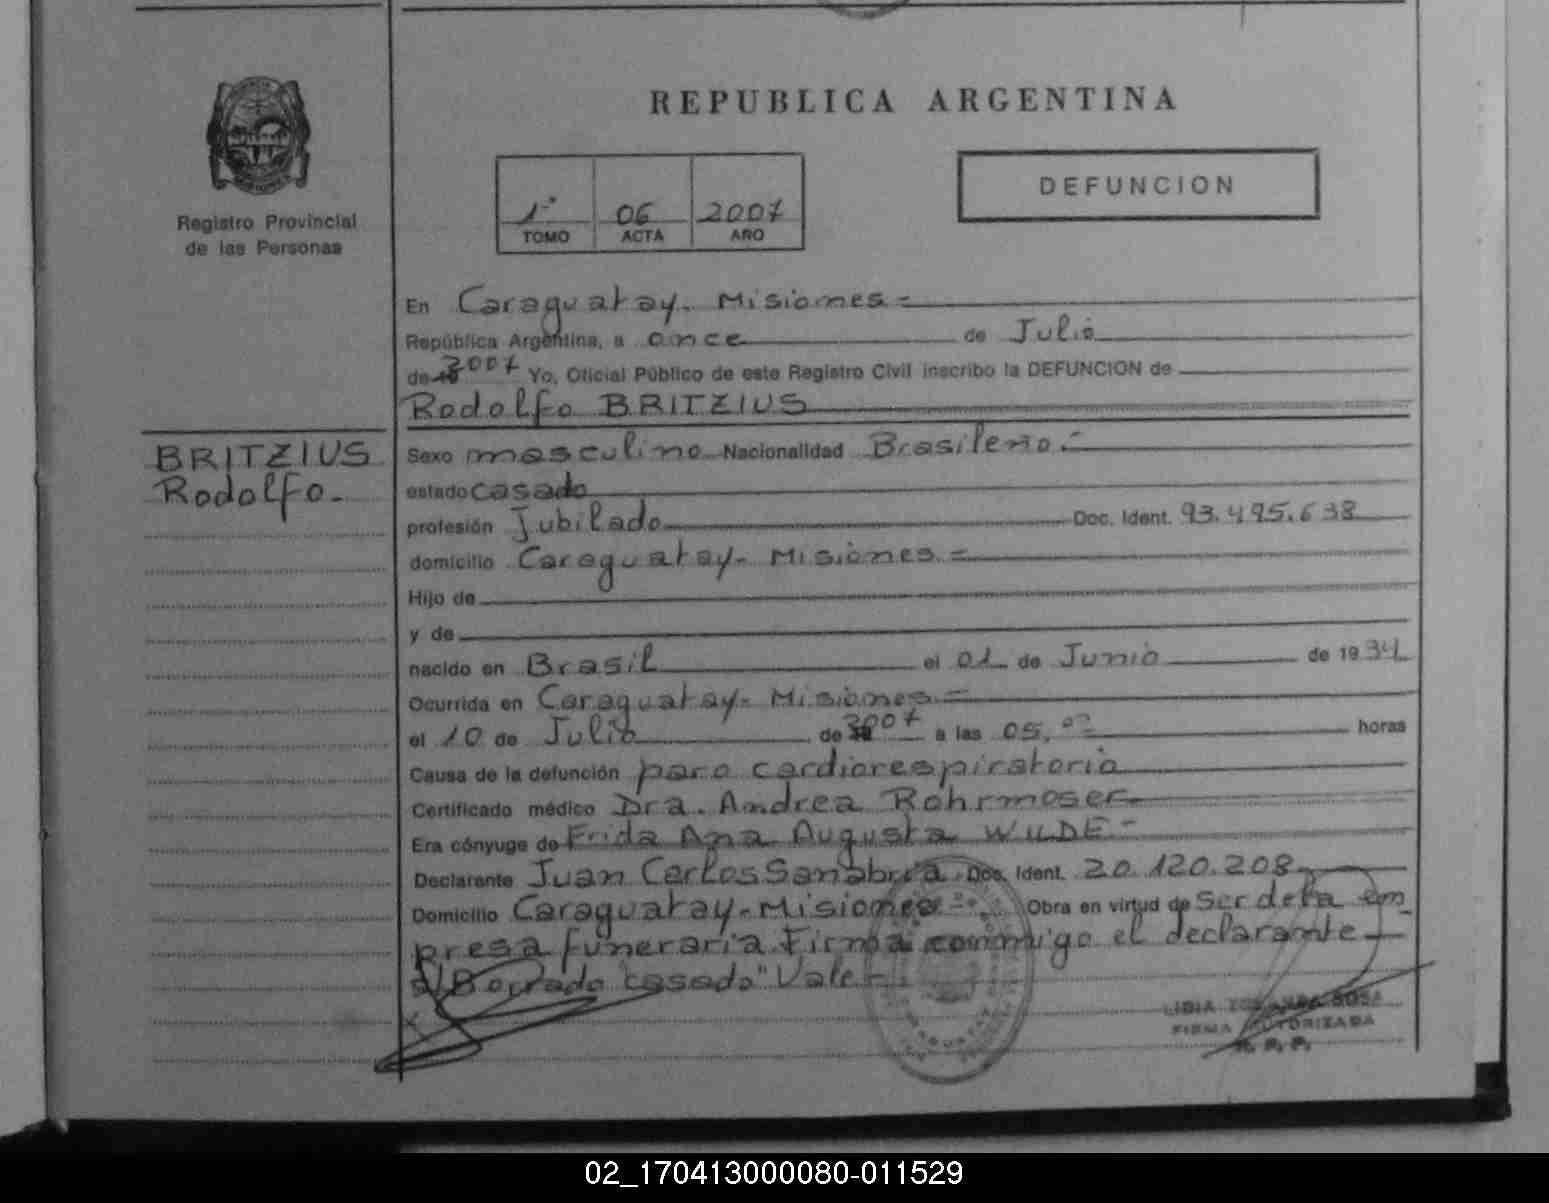 REPUBLICA ARGENTINA
DEFUNCION
1º 06 2007
TOMO ACTA AÑO
Registro Provincial
de las Personas
En Caraguatay - Misiones =
República Argentina, a once de Julio
de 19 2007 Yo, Oficial Público de este Registro Civil inscribo la DEFUNCION de
Rodolfo BRITZIUS
BRITZIUS
Rodolfo.-
Sexo masculino Nacionalidad Brasileño.-
estado casado
profesión Jubilado Doc. Ident. 93.495.638
domicilio Caraguatay - Misiones =
Hijo de
y de
nacido en Brasil el 01 de Junio de 1934
Ocurrida en Caraguatay - Misiones =
el 10 de Julio de 2007 a las 05,00 horas
Causa de la defunción paro cardiorespiratorio
Certificado médico Dra. Andrea Rohrmoser
Era cónyuge de Frida Ana Augusta WUDE -
Declarante Juan Carlos Sanabria Doc. Ident. 20.120.208
Domicilio Caraguatay - Misiones = Obra en virtud de Ser de la em
presa funeraria. Firma conmigo el declarante
s/Borrado "casado" Vale -
LIDIA SOSA
FIRMA AUTORIZADA
R. P. P.
02_170413000080-011529